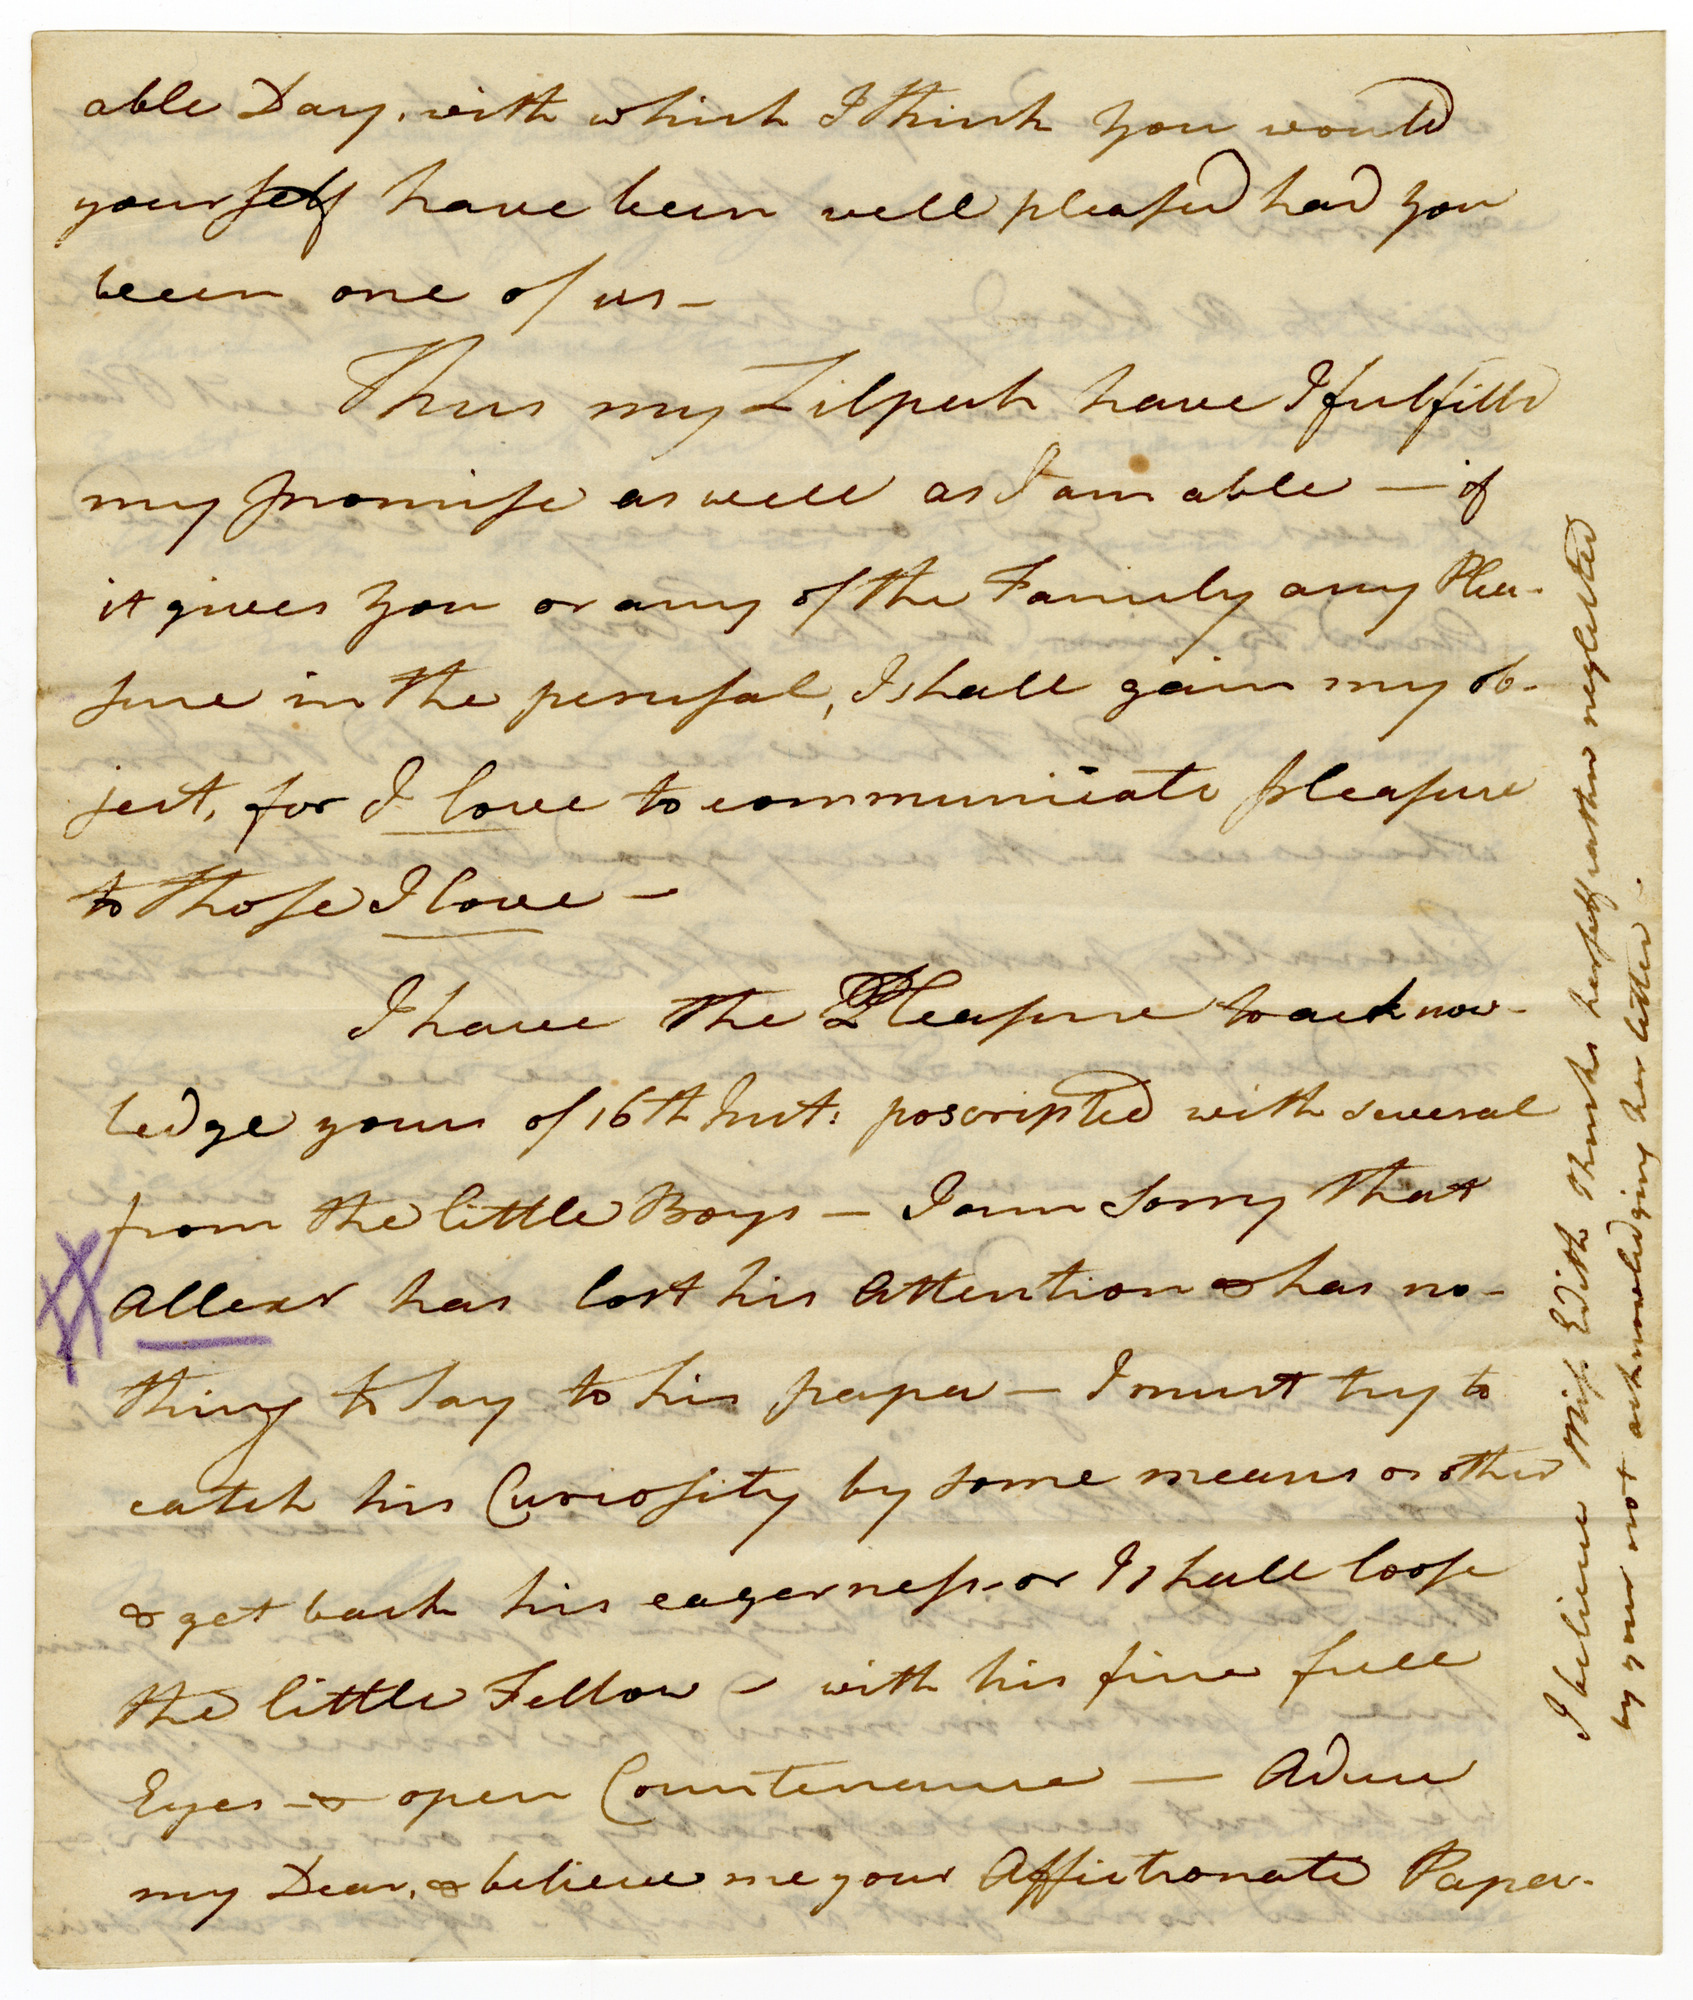 able Day, with which I think you would
yourself have been well pleased had you
been one of us –
Thus my Zilpah have I fulfilld
my promise as well as I am able – if
it gives you or any of the Family any Plea-
sure in the perusal, I shall gain my ob-
ject, for I love to communicate pleasure
to those I love –
I have the Pleasure to acknow-
ledge yours of 16th Inst: poscripted with several
from the little Boys – I am sorry that
Allexr has lost his Attention & has no-
thing to say to his papa – I must try to
catch his Curiosity by some means or other
& get back his eagerness – or I shall loose
the little Fellow – with his fine full
Eyes – & open Countenance – Adieu
my Dear, & believe me your Affictionate Papa.
I believe Miss Edith thinks herself rather neglected
by your not acknowledging her letter.